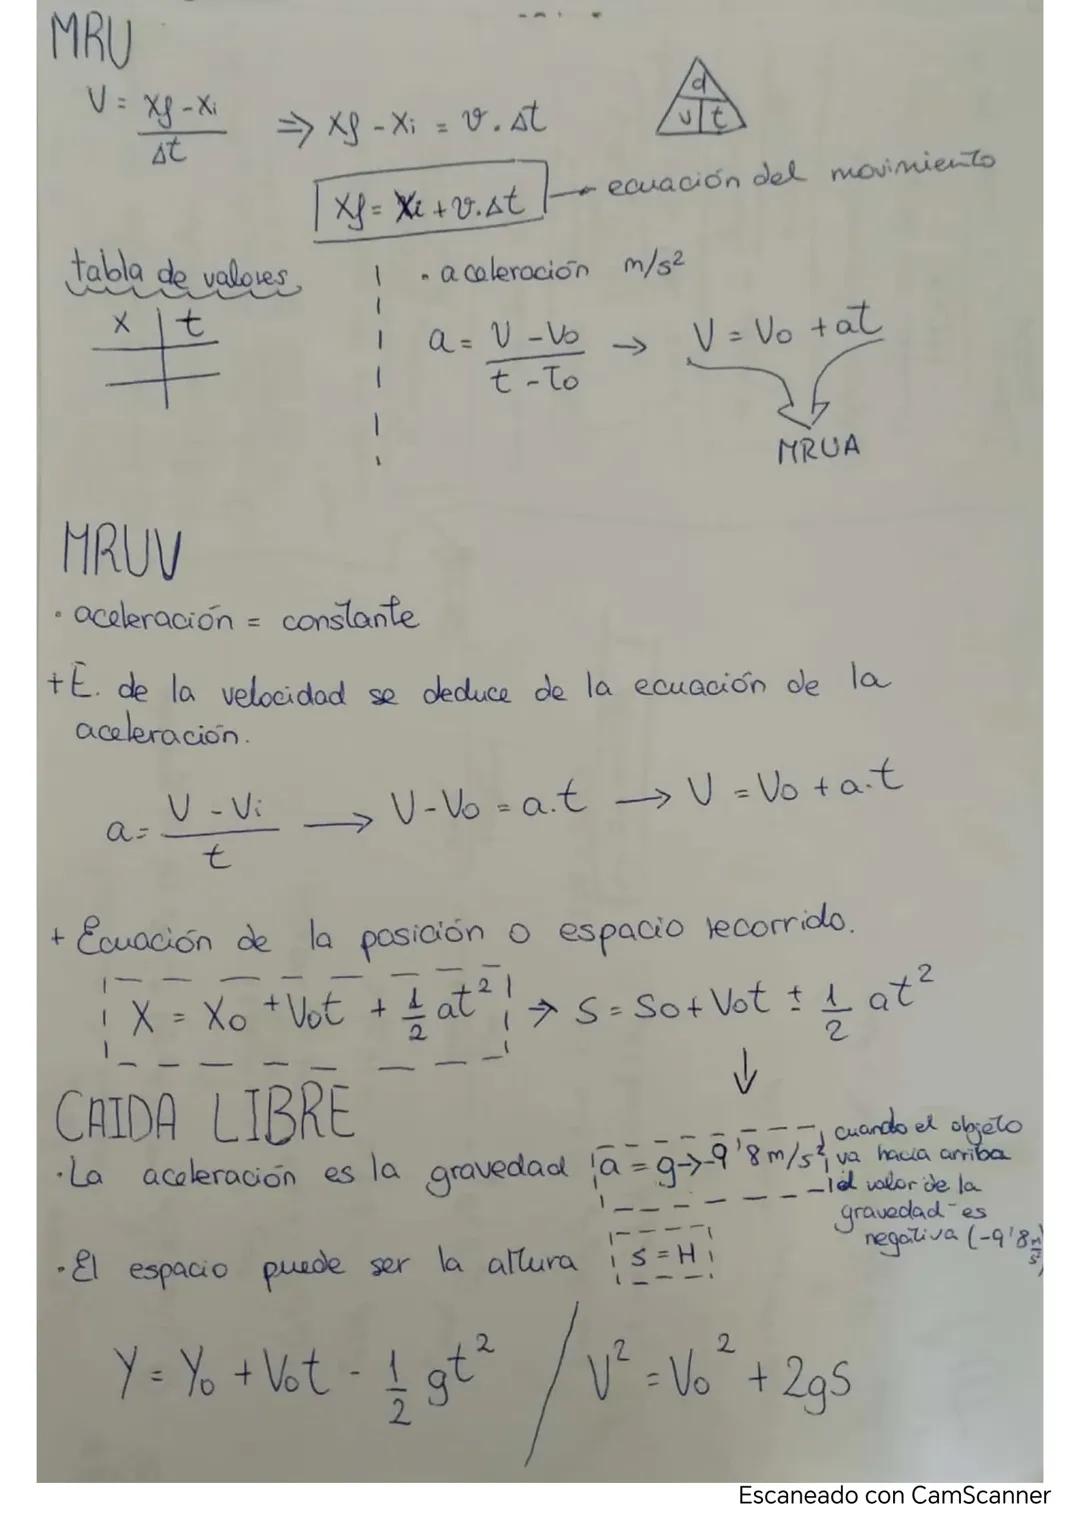 MRU
V = xf - xi / Δt ⇒ xf - xi = v . Δt
d
v t
xf = xi + v.Δt ecuación del movimiento
tabla de valores
x t
· aceleración m/s²
a = V - Vo / t - To → V = Vo + at
MRUA
MRUV
· aceleración = constante
+ E. de la velocidad se deduce de la ecuación de la
aceleración.
a = V - Vi / t → V - Vo = a.t → V = Vo + a.t
+ Ecuación de la posición o espacio recorrido.
X = Xo + Vot + 1/2 at² → S = So + Vot ± 1/2 at²
↓
CAIDA LIBRE
· La aceleración es la gravedad a = g → -9'8 m/s²
cuando el objeto
va hacia arriba
el valor de la
gravedad es
negativa (-9'8 m/s)
· El espacio puede ser la altura S = H
Y = Yo + Vot - 1/2 gt² / V² = Vo² + 2gs
Escaneado con CamScanner